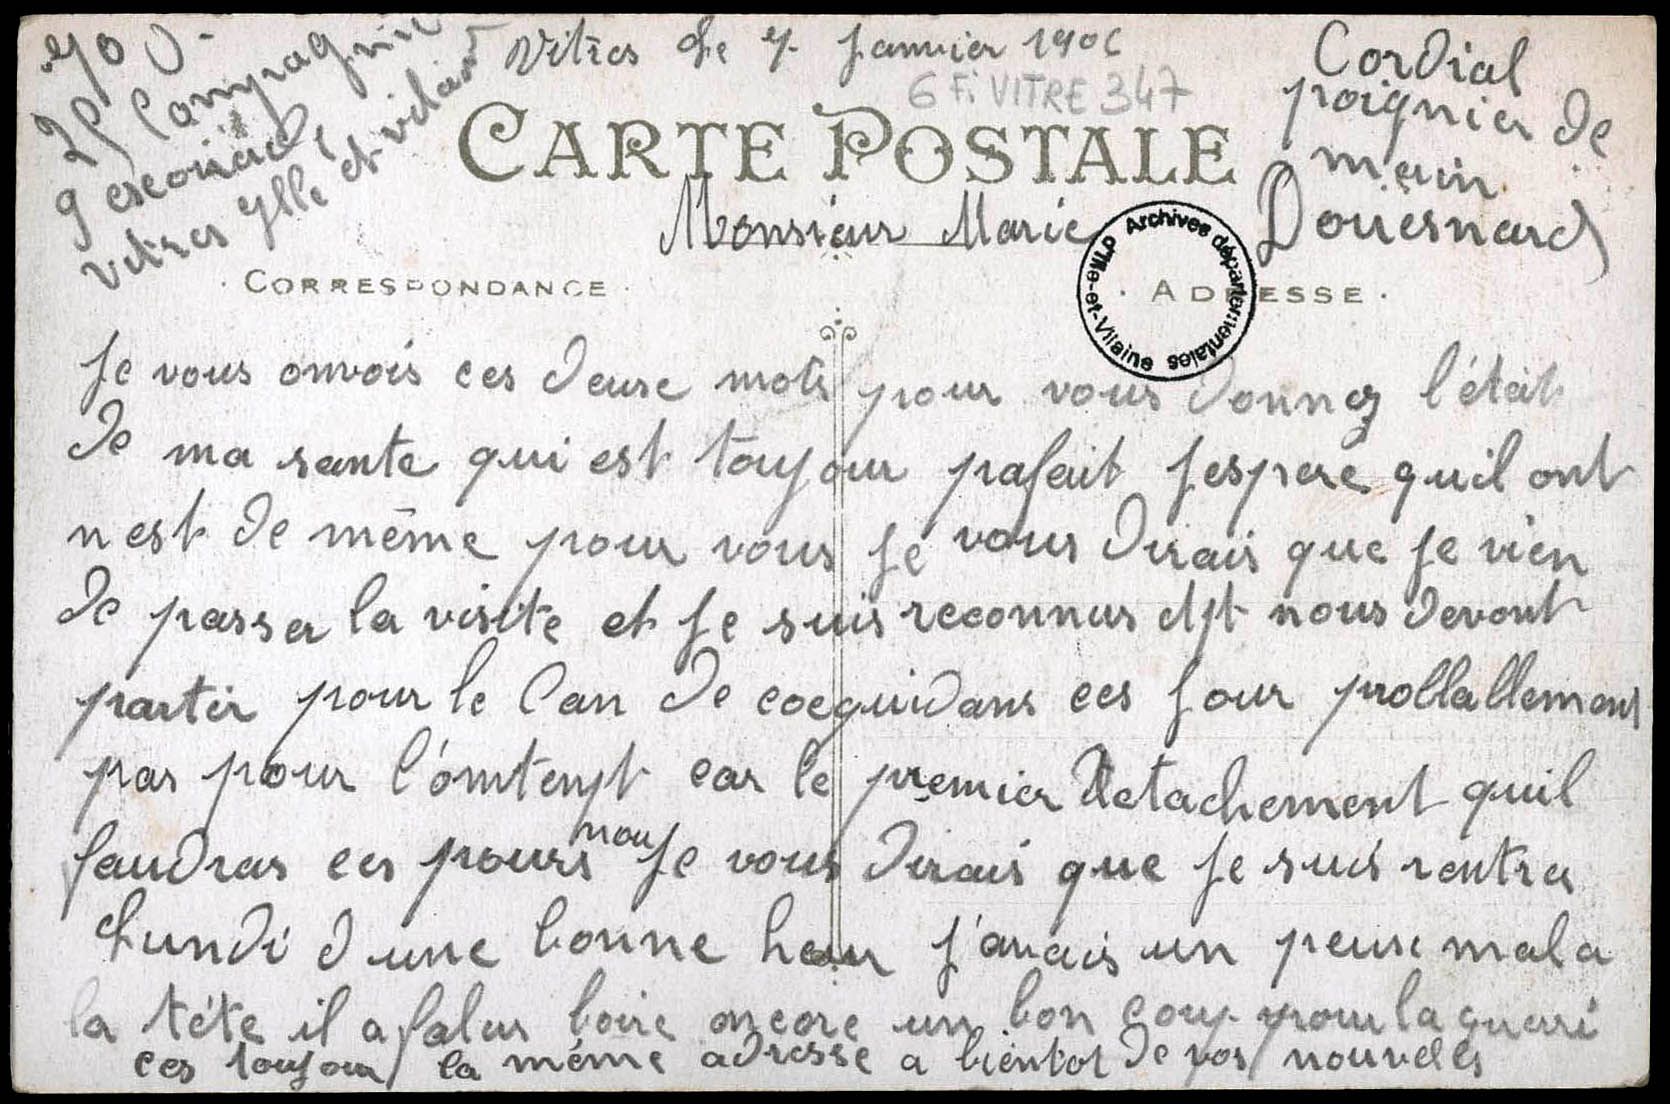 70 D-
25 Compagnie
9 escouade
vitres ylle et vilaine
Vitres Le 7 Janvier 190
6 Fi VITRE 347
CARTE POSTALE
Cordial
poignier de
main
Monsieur Marie Douesnard
Archives départementales d'Ille-et-Vilaine
CORRESPONDANCE
ADRESSE
Je vous onvois ces deuse mots pour vous donnez l'état
de ma sante qui est toujour pafait Jespere quil ont
n est de même pour vous Je vous dirais que Je vien
de passer la visite et Je suis reconnus apt nous devont
partir pour le Can de coequidans ces Jour probbablement
pas pour l'omtenpt car le premier detachement quil
faudras ces pours nou Je vous dirais que Je suis rentrer
Lundi d une bonne heur J'avais un peuse mal a
la téte il a falus boire oncore un bon coup pour la gueri
ces toujour la méme adresse a bientot de vos nouvelles